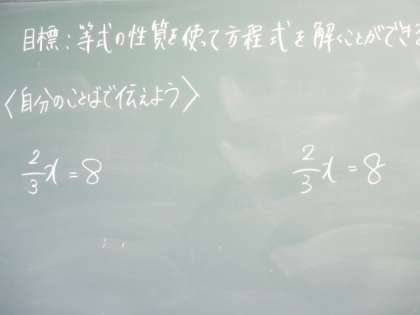 目標：等式の性質を使って方程式を解くことができる
〈自分のことばで伝えよう〉
2/3 x = 8 2/3 x = 8